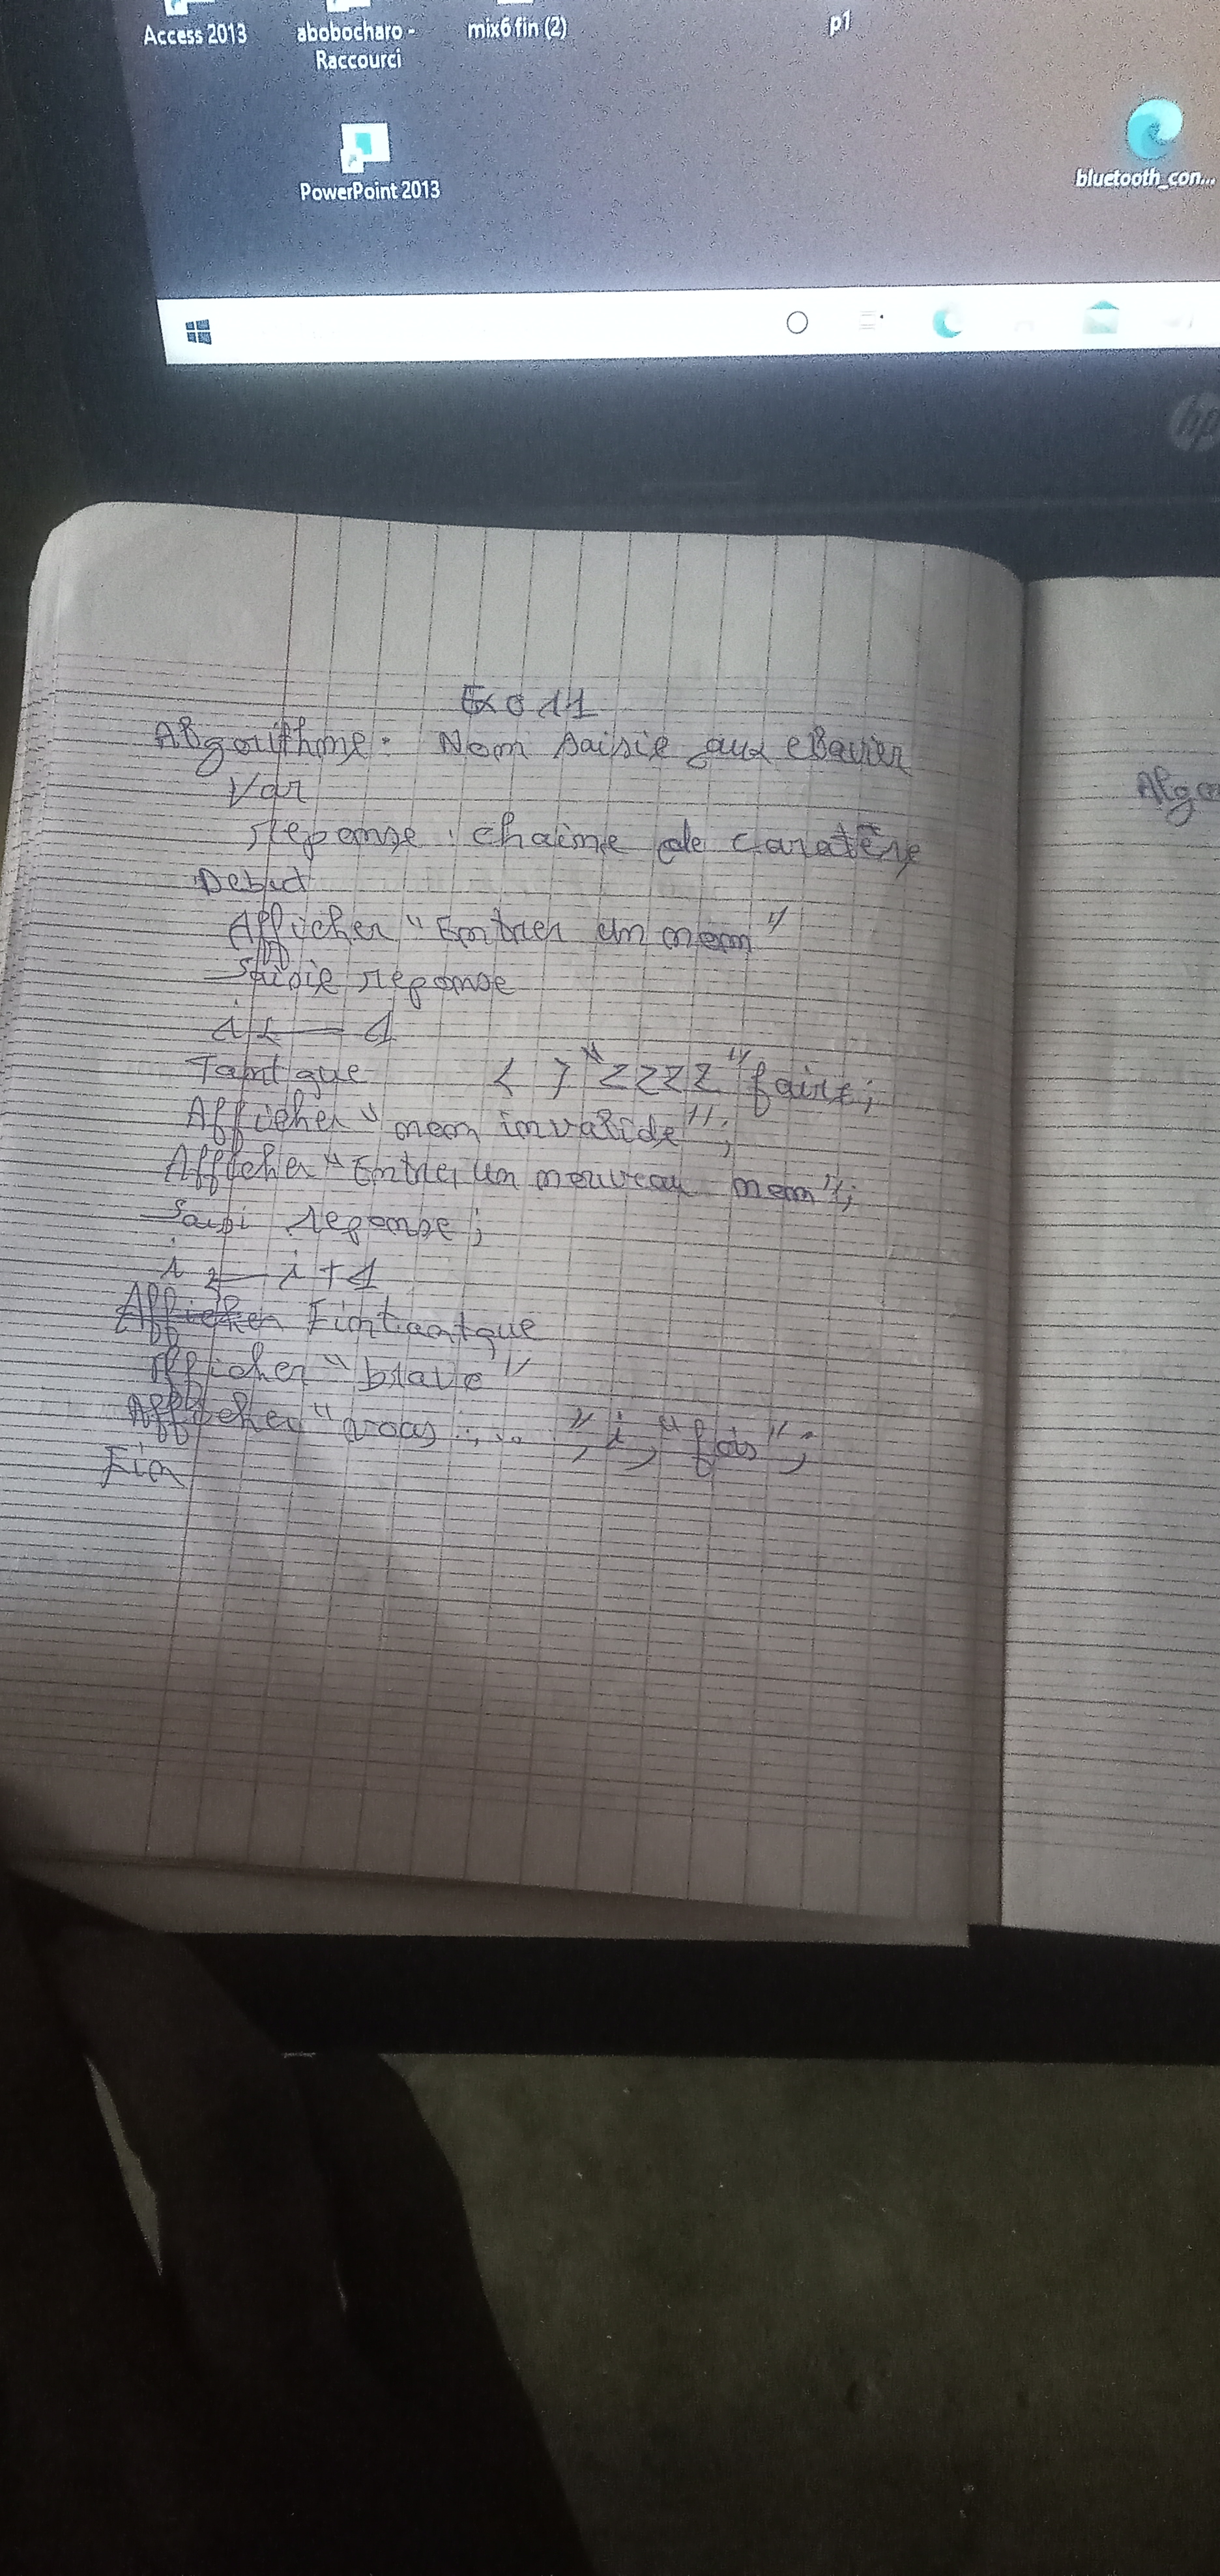 Access 2013
abobocharo -
Raccourci
mix6 fin (2)
p1
PowerPoint 2013
bluetooth_con...
hp
Exo 11
Algorithme. Nom saisie aux clavier
Var
reponse : chaine de caratère
Debut
Afficher "Entrer un nom"
Saisie reponse
i ← 1
Tant que < > "ZZZZ" faire;
Afficher "nom invalide";
Afficher "Entrer un nouveau nom";
Saisi reponse;
i ← i + 1
Afficher Fintantque
Afficher "bravo"
Afficher "vous ... ", i, "fois";
Fin
Algo